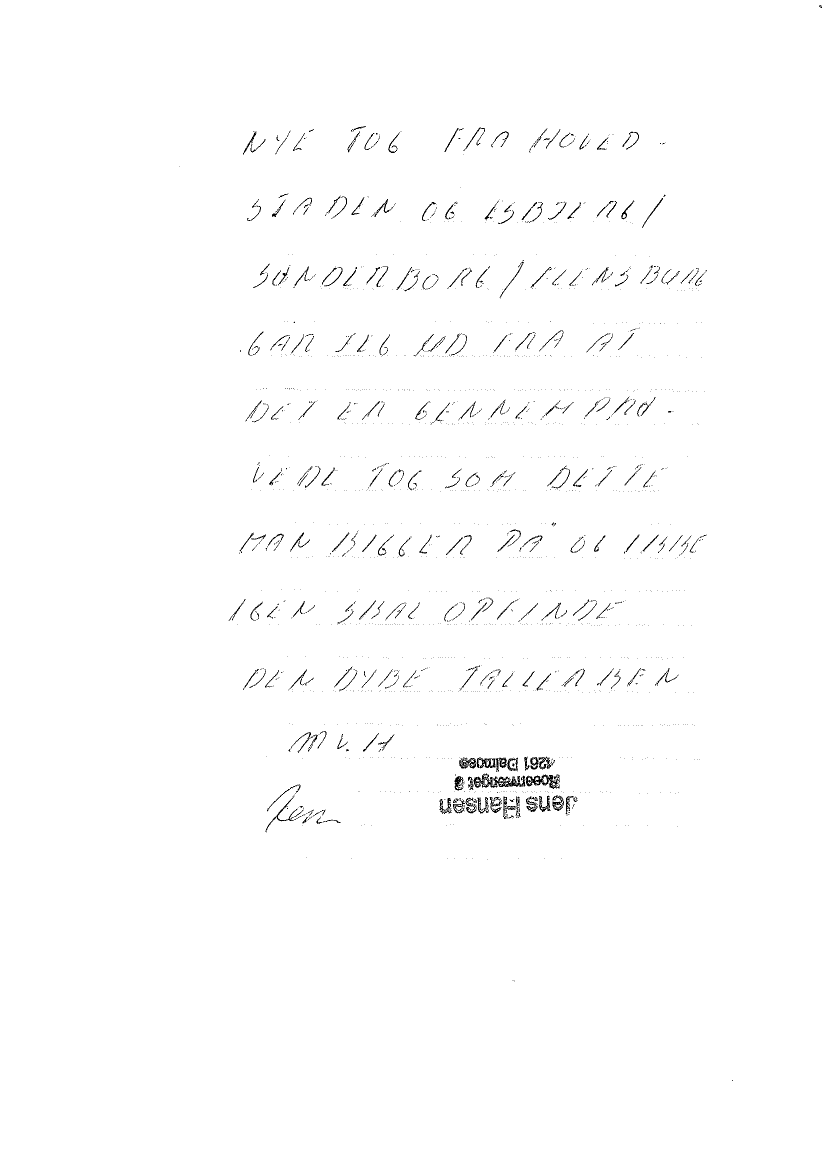 NYE TOG FRA HOVED-
STADEN OG ESBJERG/
SØNDERBORG/FLENSBURG
GÅR JEG UD FRA AT
DET ER GENNEMPRØ-
VEDE TOG SOM DETTE
MAN KIGGER PÅ OG IKKE
IGEN SKAL OPFINDE
DEN DYBE TALLERKEN
M V. H
Jens
Jens Hansen
4261 Dalmose